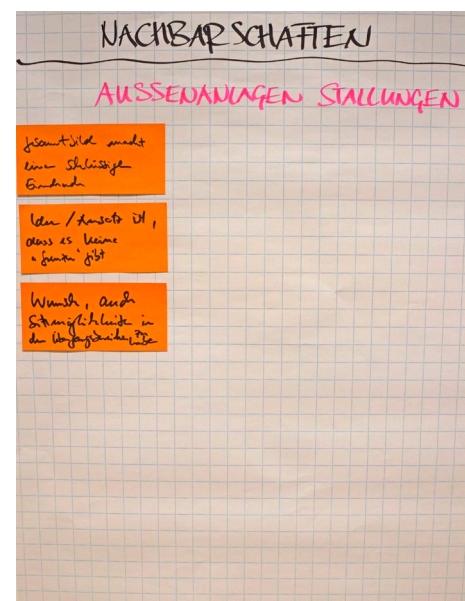 NACHBARSCHAFTEN
AUSSENANLAGEN STALLUNGEN
Gesamtbild macht
einen schlüssigen
Eindruck
Idee / Ansatz ist,
dass es keine
gibt
Wunsch, auch
Sitzmöglichkeiten in
den Übergangsbereichen,